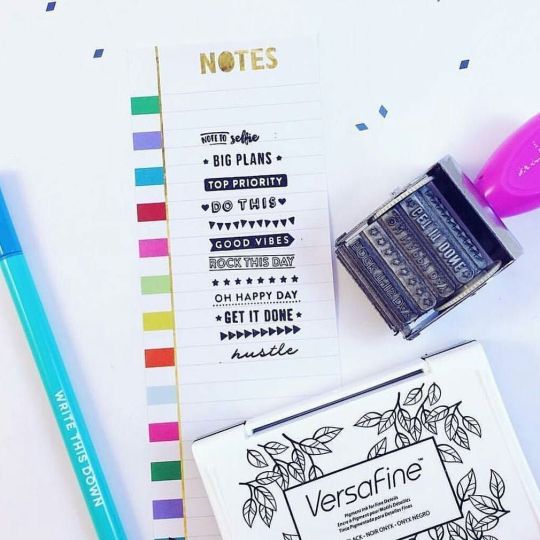 NOTES
NOTE TO selfie
BIG PLANS
TOP PRIORITY
DO THIS
GOOD VIBES
ROCK THIS DAY
OH HAPPY DAY
GET IT DONE
hustle
WRITE THIS DOWN
GET IT DONE
OH HAPPY DAY
ROCK THIS DAY
VERSAFINE™
Pigment Ink for Fine Details
Encre à Pigment pour Motifs Détaillés
Tinta Pigmentada para Detalles Finos
NOIR ONYX - ONYX NEGRO